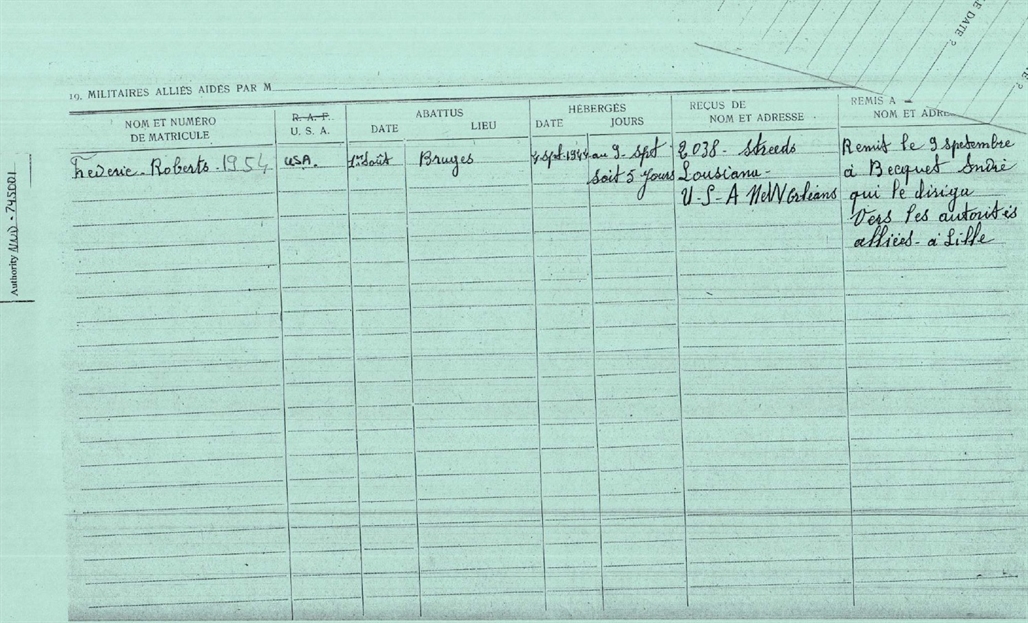 LE DATE ?
TE ?
19. MILITAIRES ALLIÉS AIDÉS PAR M
NOM ET NUMÉRO
DE MATRICULE
R. A. F.
U. S. A.
ABATTUS
DATE LIEU
HÉBERGÉS
DATE JOURS
REÇUS DE
NOM ET ADRESSE
REMIS A
NOM ET ADRE
Frederic - Roberts - 1954 USA. 1er Août Bruges 4 Spt-1944 au 9 - Spt 2038 - Streeds Remit le 9 Spetembre
Soit 5 Jours Lousiana - à Becquet André
U-S-A New Orléans qui le dirigea
Vers les autorités
alliées - à Lille
Authority NND - 745001